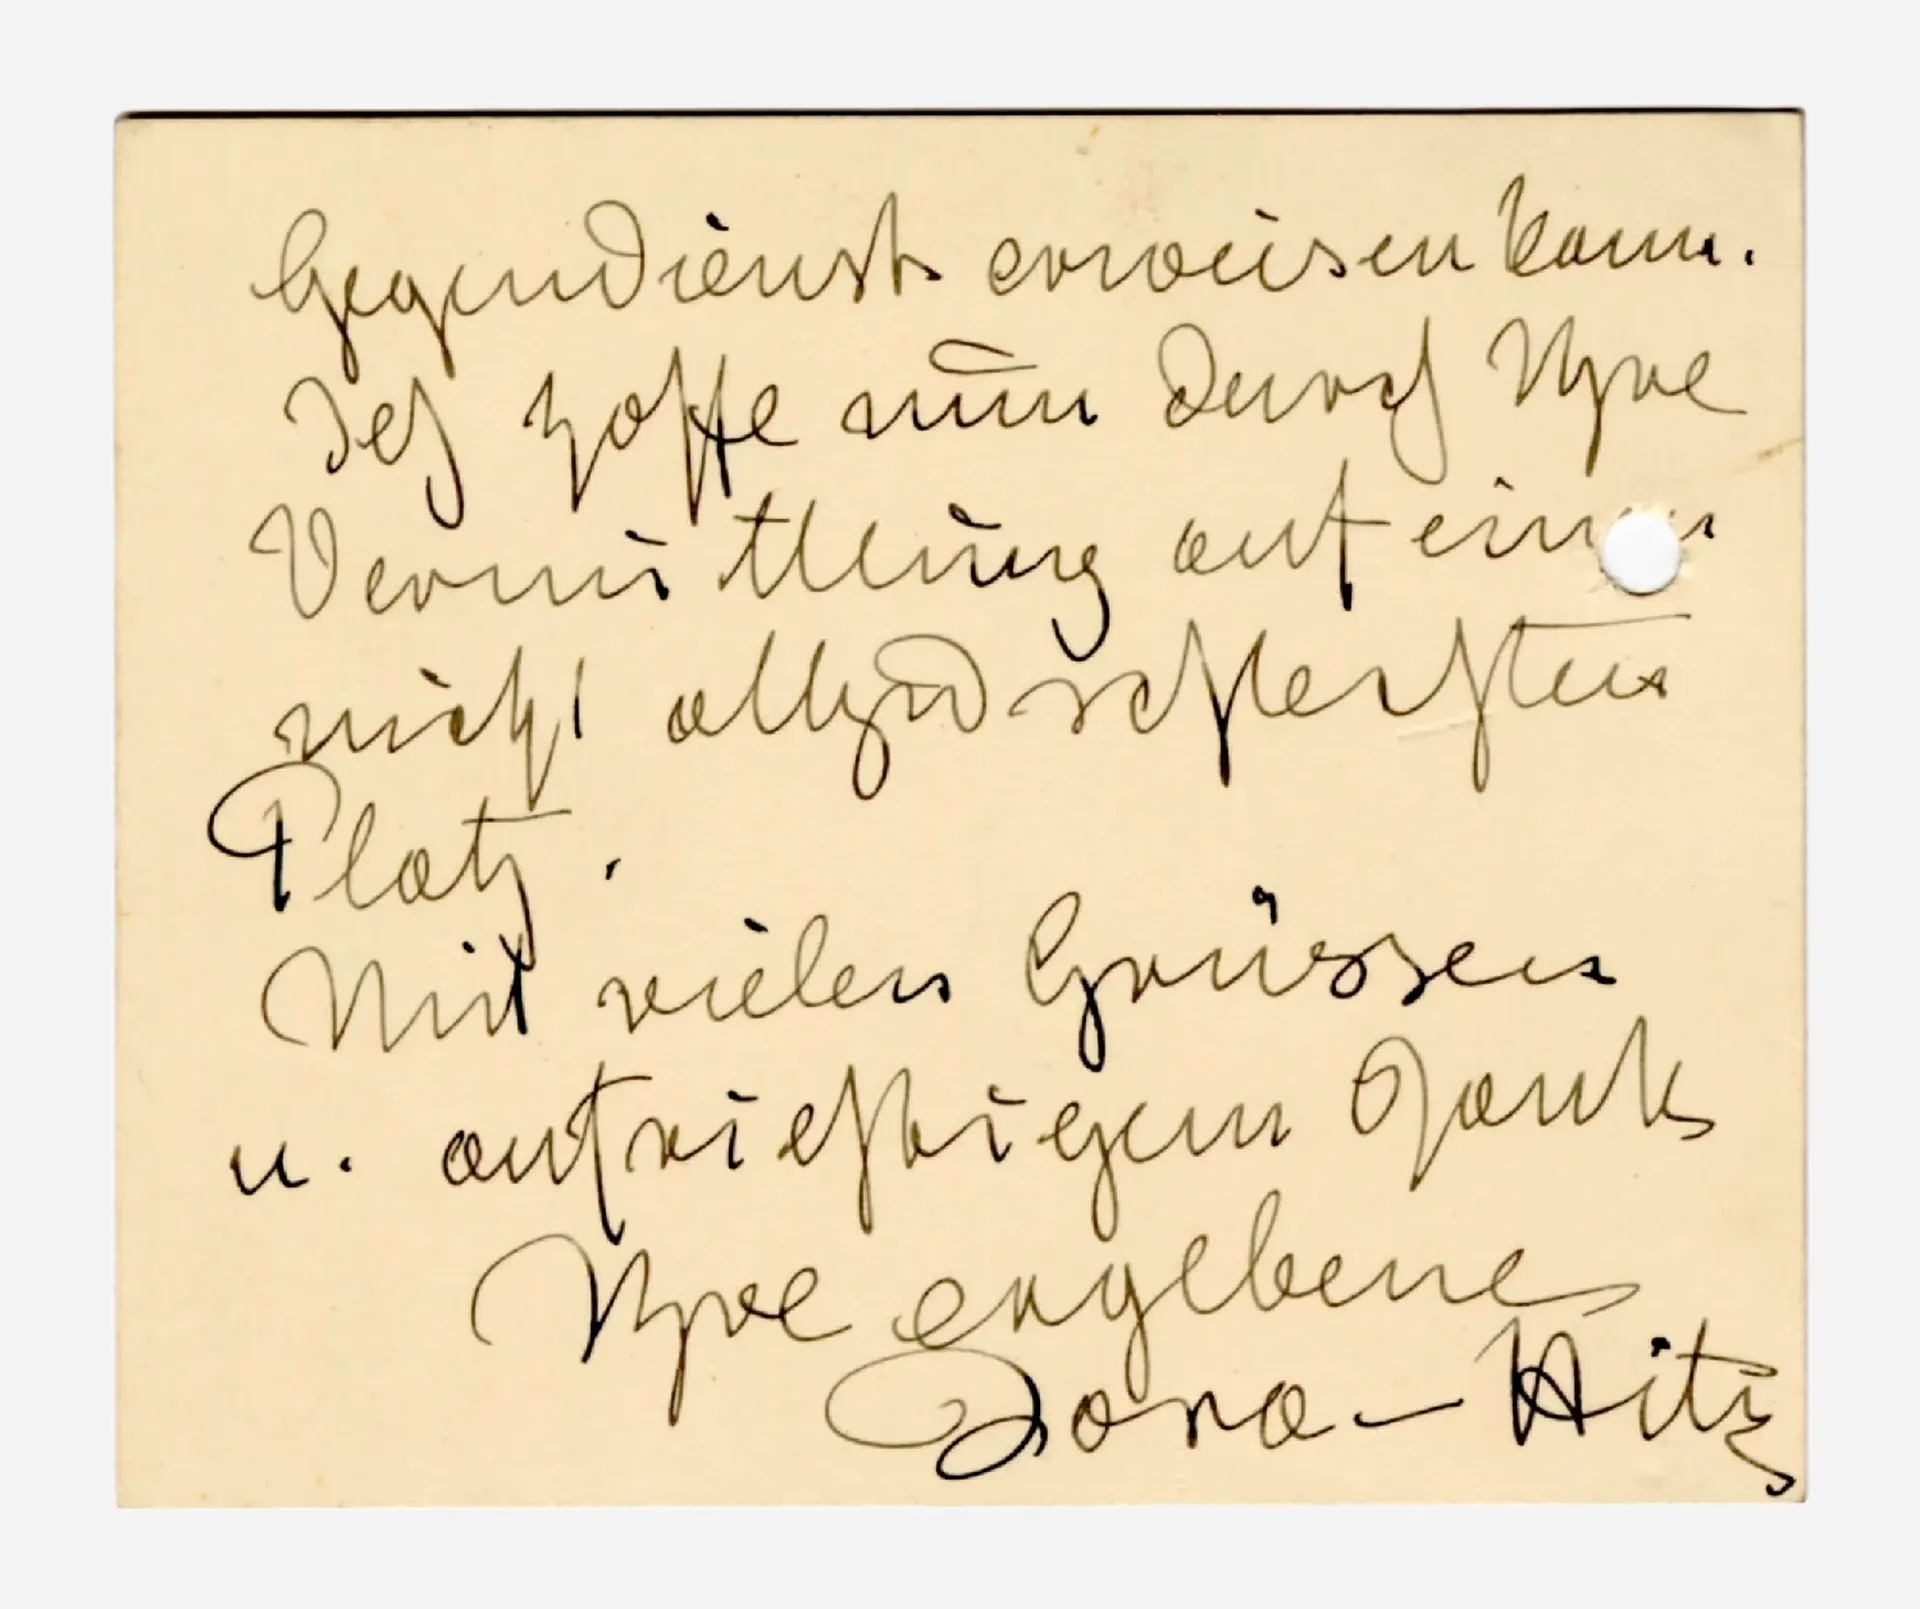 Gegendienst erweisen kann.
Ich hoffe nun durch Ihre
Vermittlung auf einen
nicht allzu schlechten
Platz.
Mit vielen Grüssen
u. aufrichtigem Dank
Ihre ergebene
Dora Hitz